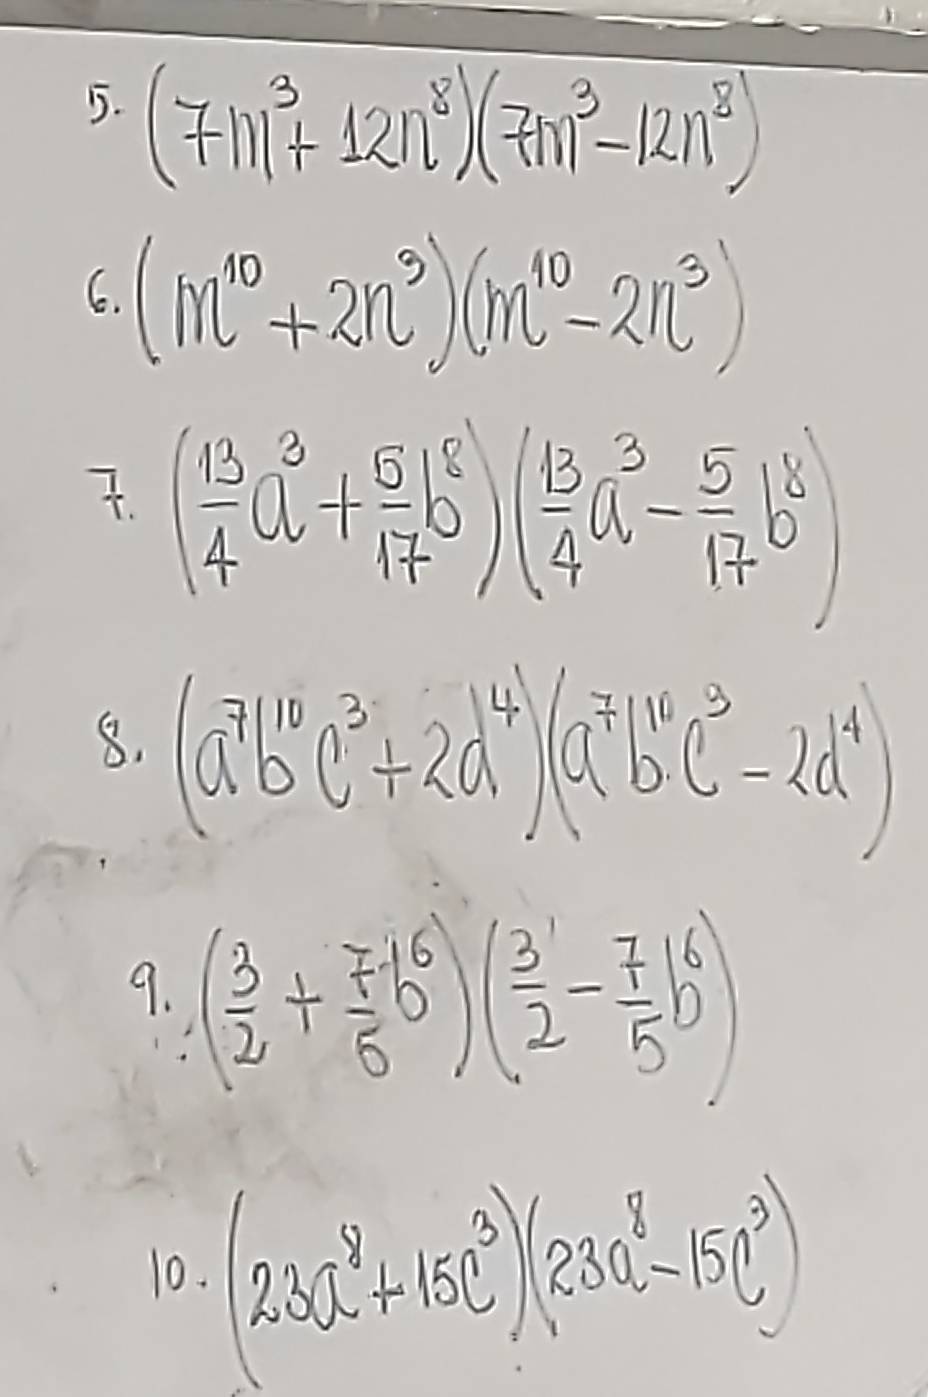 5. (7m³+ 12n⁸)(7m³-12n⁸)
6. (m¹⁰+2n³)(m¹⁰-2n³)
7. (13/4 a³ + 5/17 b⁸)(13/4 a³ - 5/17 b⁸)
8. (a⁷b¹⁰c³+2d⁴)(a⁷b¹⁰c³-2d⁴)
9. (3/2 + 7/5 b⁶)(3/2 - 7/5 b⁶)
10. (23a⁸+15c³)(23a⁸-15c³)